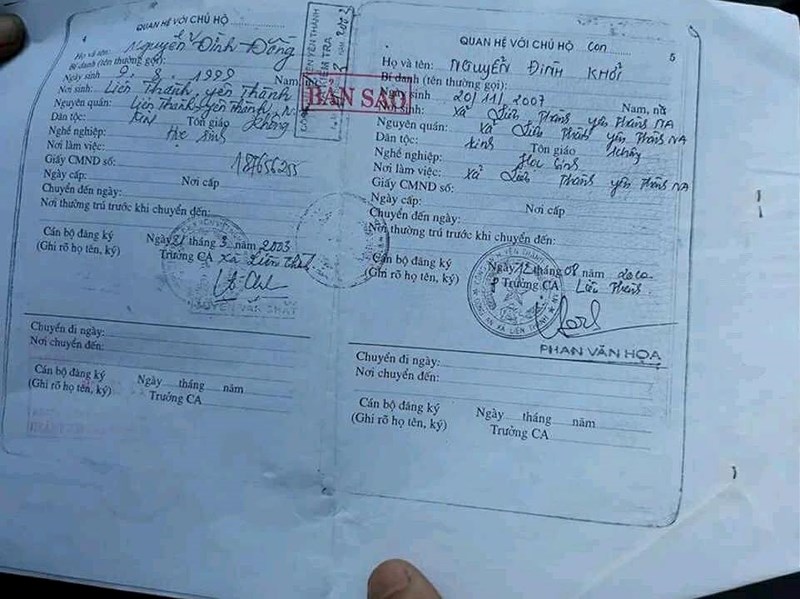 4
QUAN HỆ VỚI CHỦ HỘ
Họ và tên: Nguyễn Đình Đồng
Bí danh (tên thường gọi):
Ngày sinh 9. 8. 1999 Nam, nữ
Nơi sinh: Liên Thành, yên Thành
Nguyên quán: Liên Thành, yên Thành, N.
Dân tộc: Kin Tôn giáo không
Nghề nghiệp: Học sinh
Nơi làm việc:
Giấy CMND số: 187656255
Ngày cấp: Nơi cấp
Chuyển đến ngày:
Nơi thường trú trước khi chuyển đến:
Cán bộ đăng ký Ngày 21 tháng 3 năm 2003
(Ghi rõ họ tên, ký) Trưởng CA xã Liên Thành
Chuyển đi ngày:
Nơi chuyển đến:
Cán bộ đăng ký Ngày tháng năm
(Ghi rõ họ tên, ký) Trưởng CA
YÊN THÀNH
BẢN SAO
5
QUAN HỆ VỚI CHỦ HỘ con
Họ và tên: NGUYỄN ĐÌNH KHÔI
Bí danh (tên thường gọi):
Ngày sinh 20/11/2007 Nam, nữ
Nơi sinh: xã Liên Thành yên Thành NA
Nguyên quán: xã Liên Thành yên Thành NA
Dân tộc: kinh Tôn giáo không
Nghề nghiệp: Học sinh
Nơi làm việc: xã Liên Thành yên Thành NA
Giấy CMND số:
Ngày cấp: Nơi cấp
Chuyển đến ngày:
Nơi thường trú trước khi chuyển đến:
Cán bộ đăng ký Ngày 12 tháng 08 năm
(Ghi rõ họ tên, ký) Trưởng CA Liên Thành
PHAN VĂN HỌA
Chuyển đi ngày:
Nơi chuyển đến:
Cán bộ đăng ký Ngày tháng năm
(Ghi rõ họ tên, ký) Trưởng CA